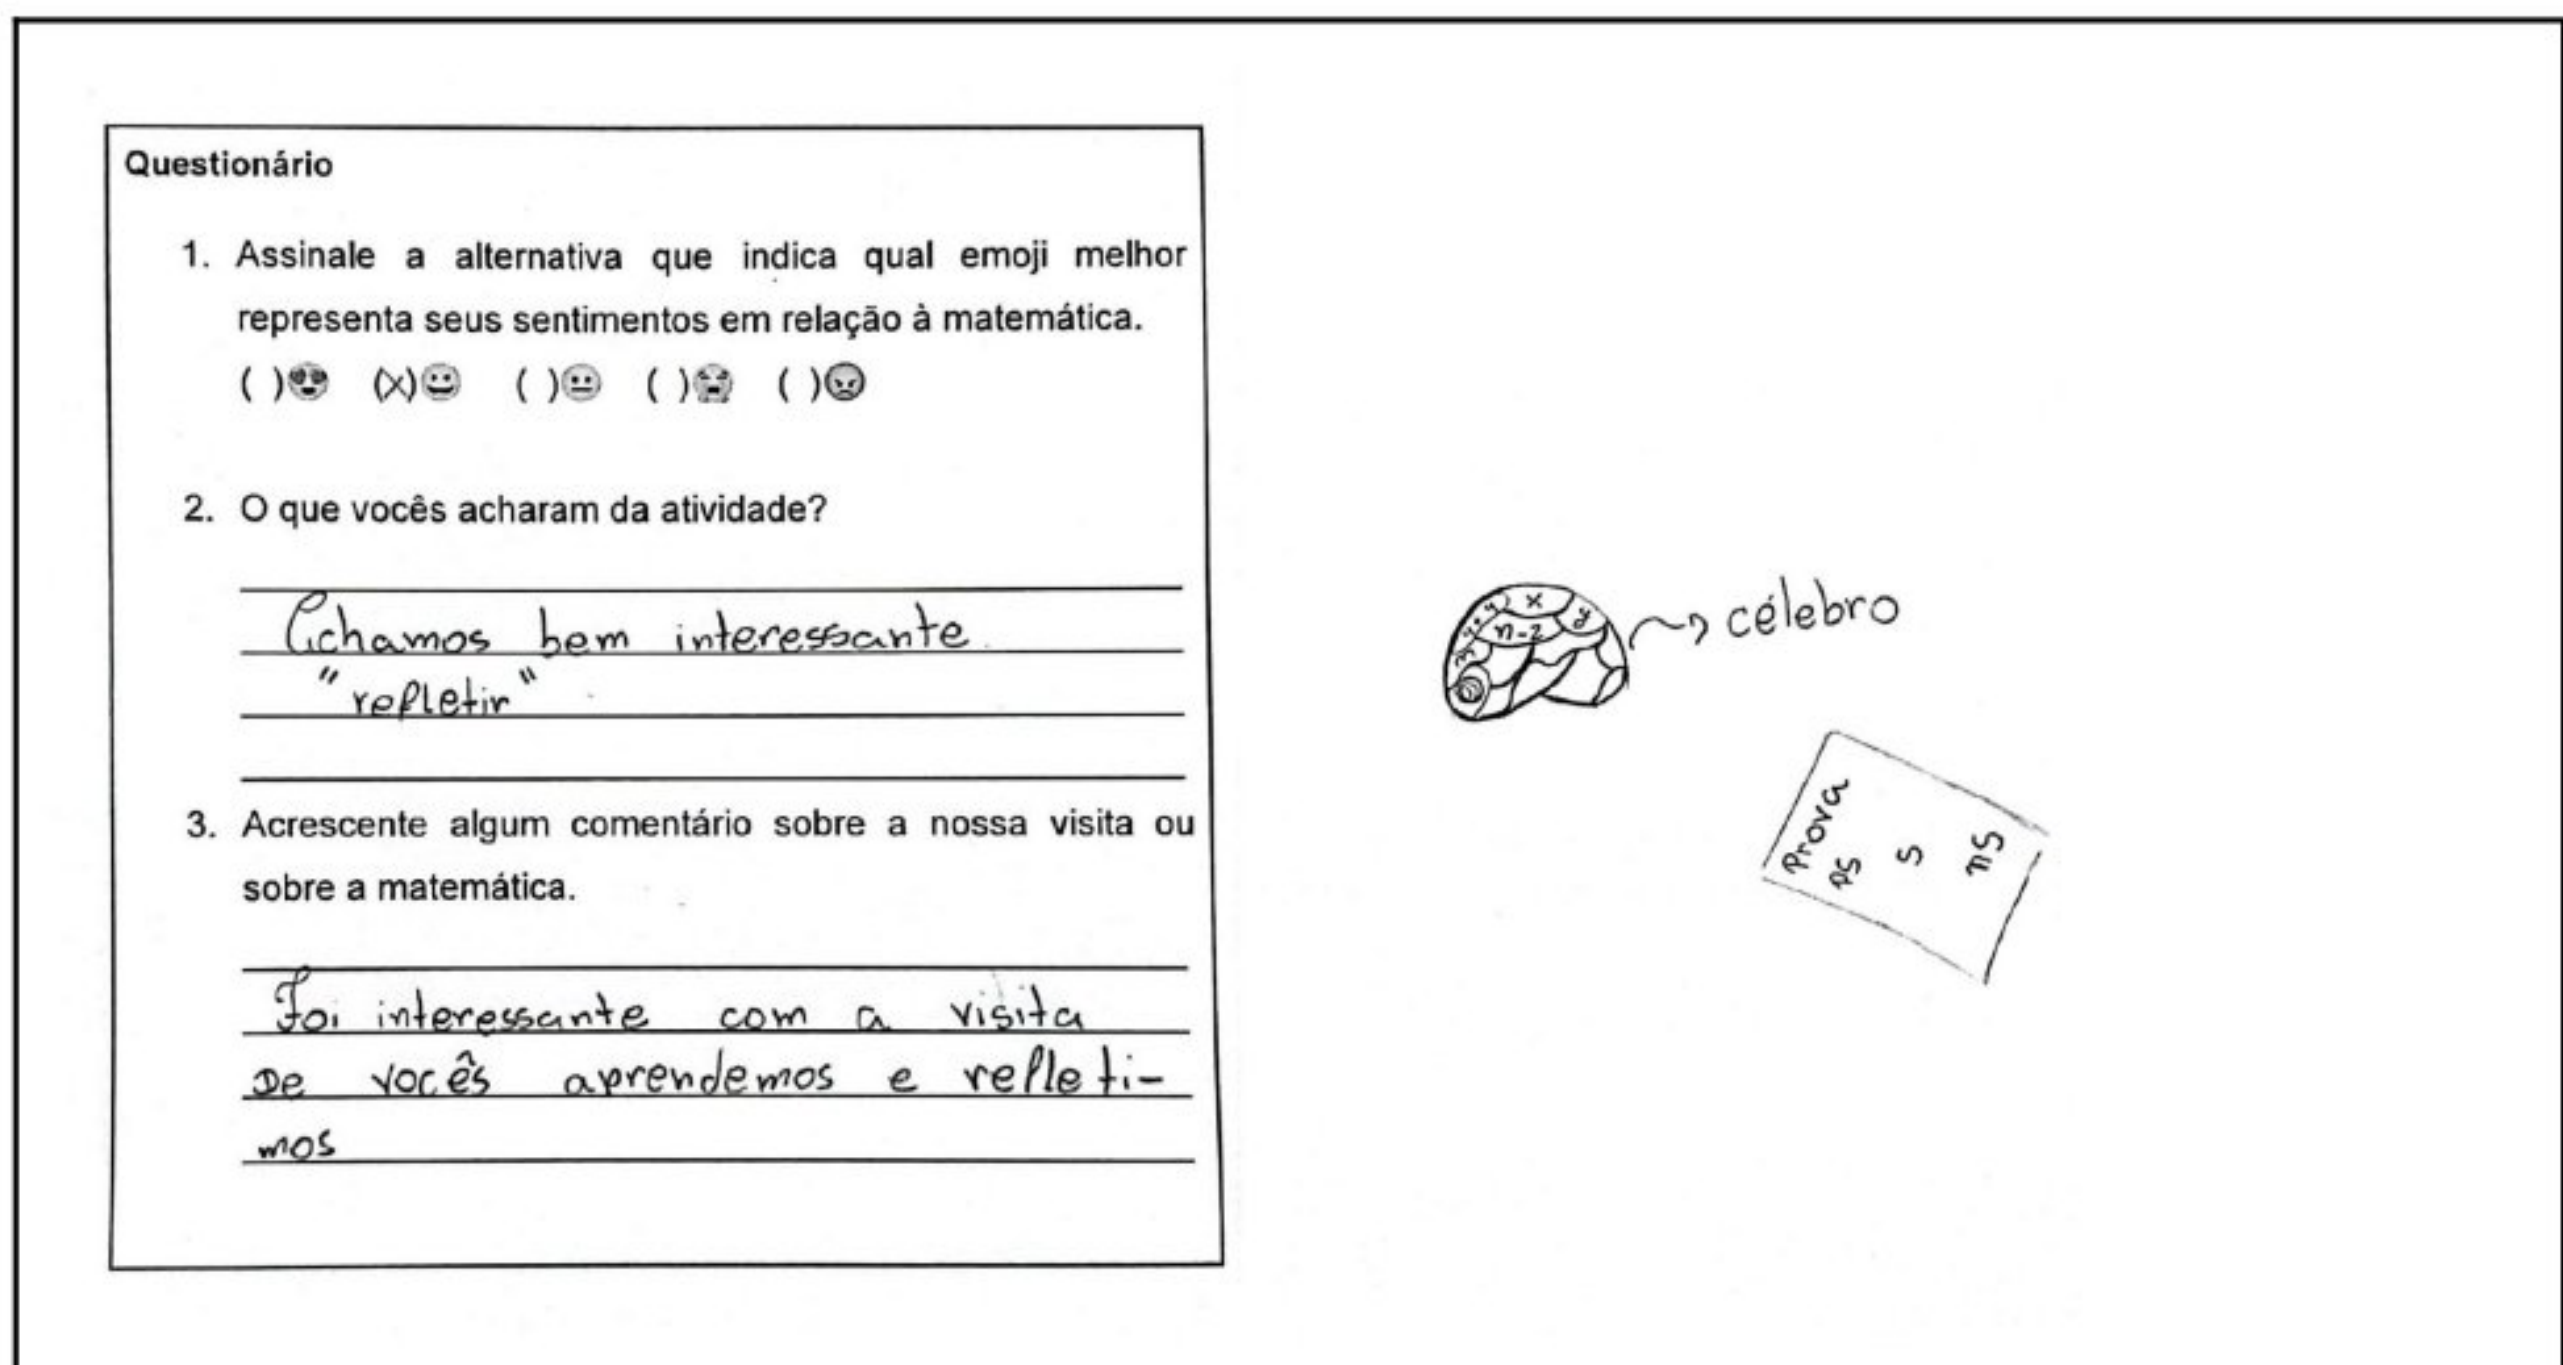 Questionário
1. Assinale a alternativa que indica qual emoji melhor
representa seus sentimentos em relação à matemática.
( )😍 (X)😀 ( )😐 ( )😭 ( )😡
2. O que vocês acharam da atividade?
Achamos bem interessante.
"refletir"
3. Acrescente algum comentário sobre a nossa visita ou
sobre a matemática.
Foi interessante com a visita
De vocês aprendemos e refleti-
mos
x
y
n-2
célebro
Prova
PS
S
nS